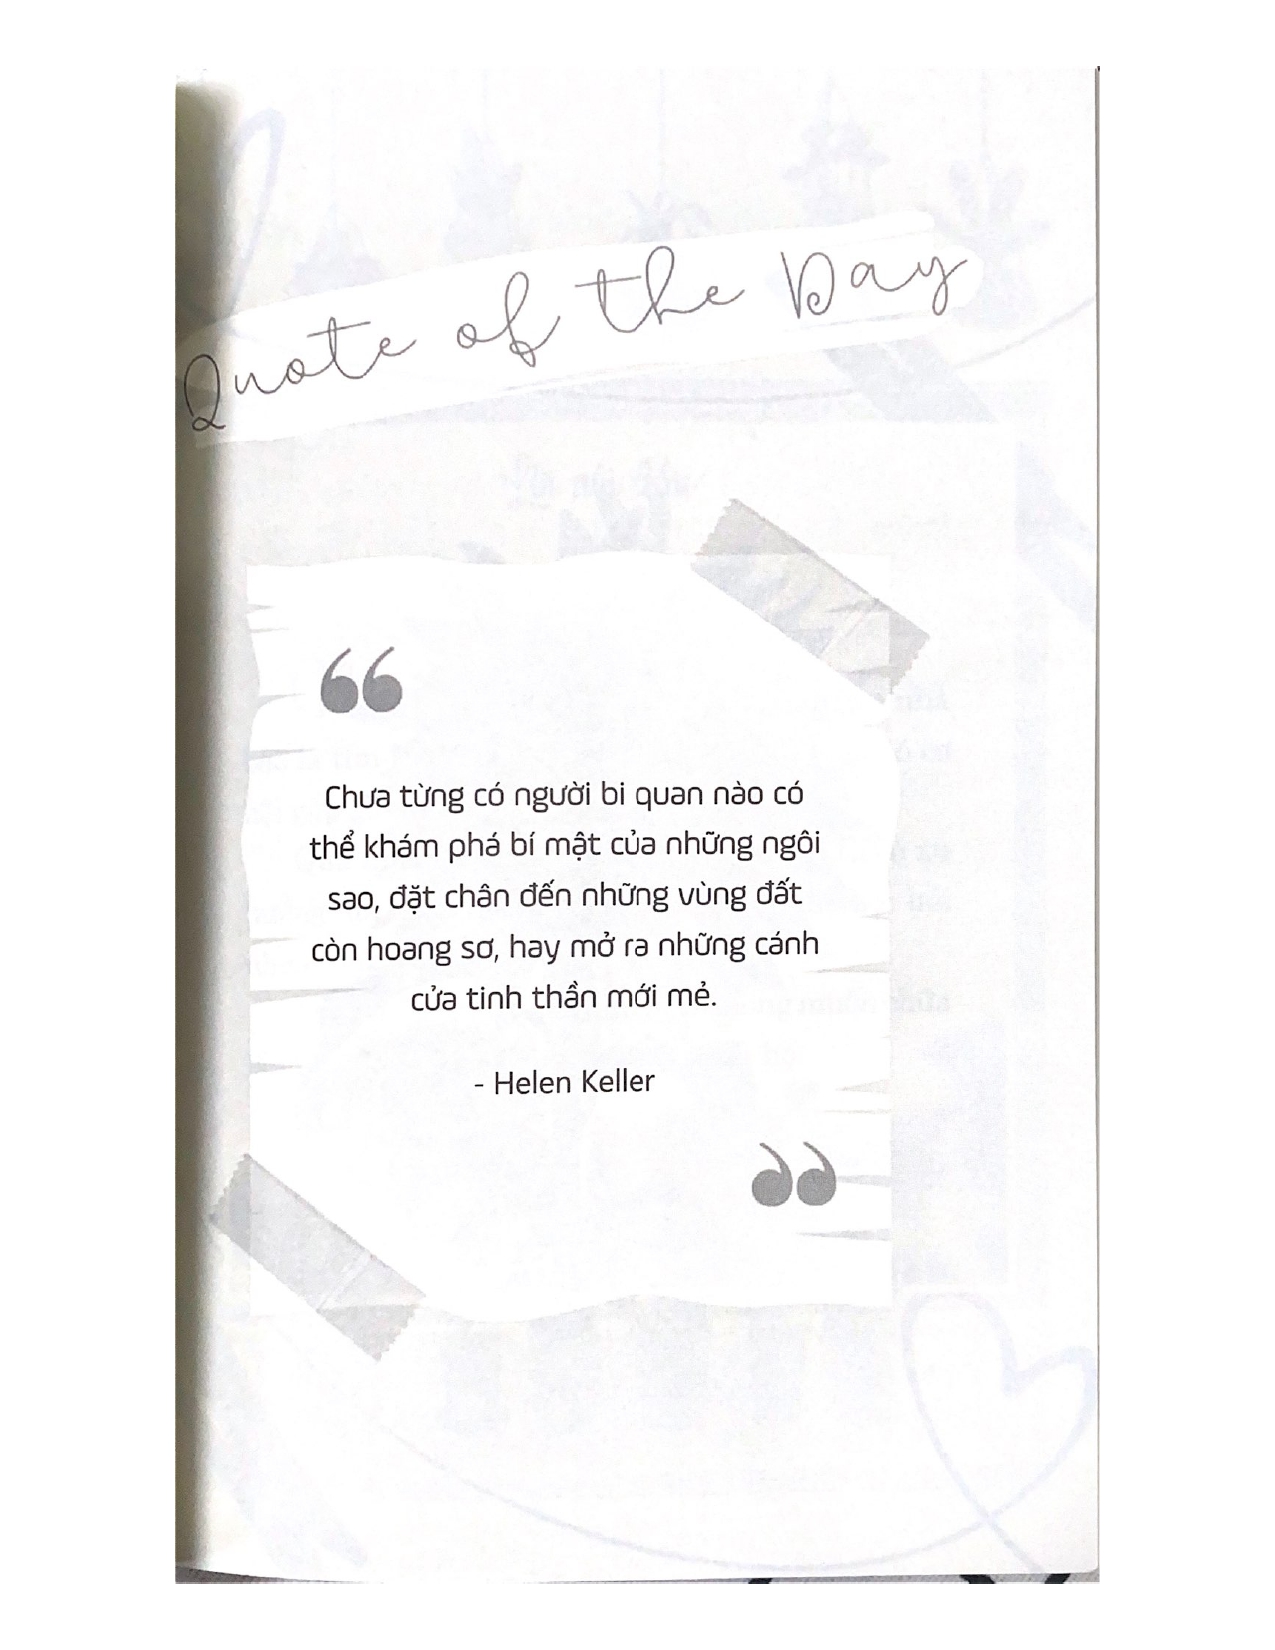 Quote of the Day
Chưa từng có người bi quan nào có
thể khám phá bí mật của những ngôi
sao, đặt chân đến những vùng đất
còn hoang sơ, hay mở ra những cánh
cửa tinh thần mới mẻ.
- Helen Keller